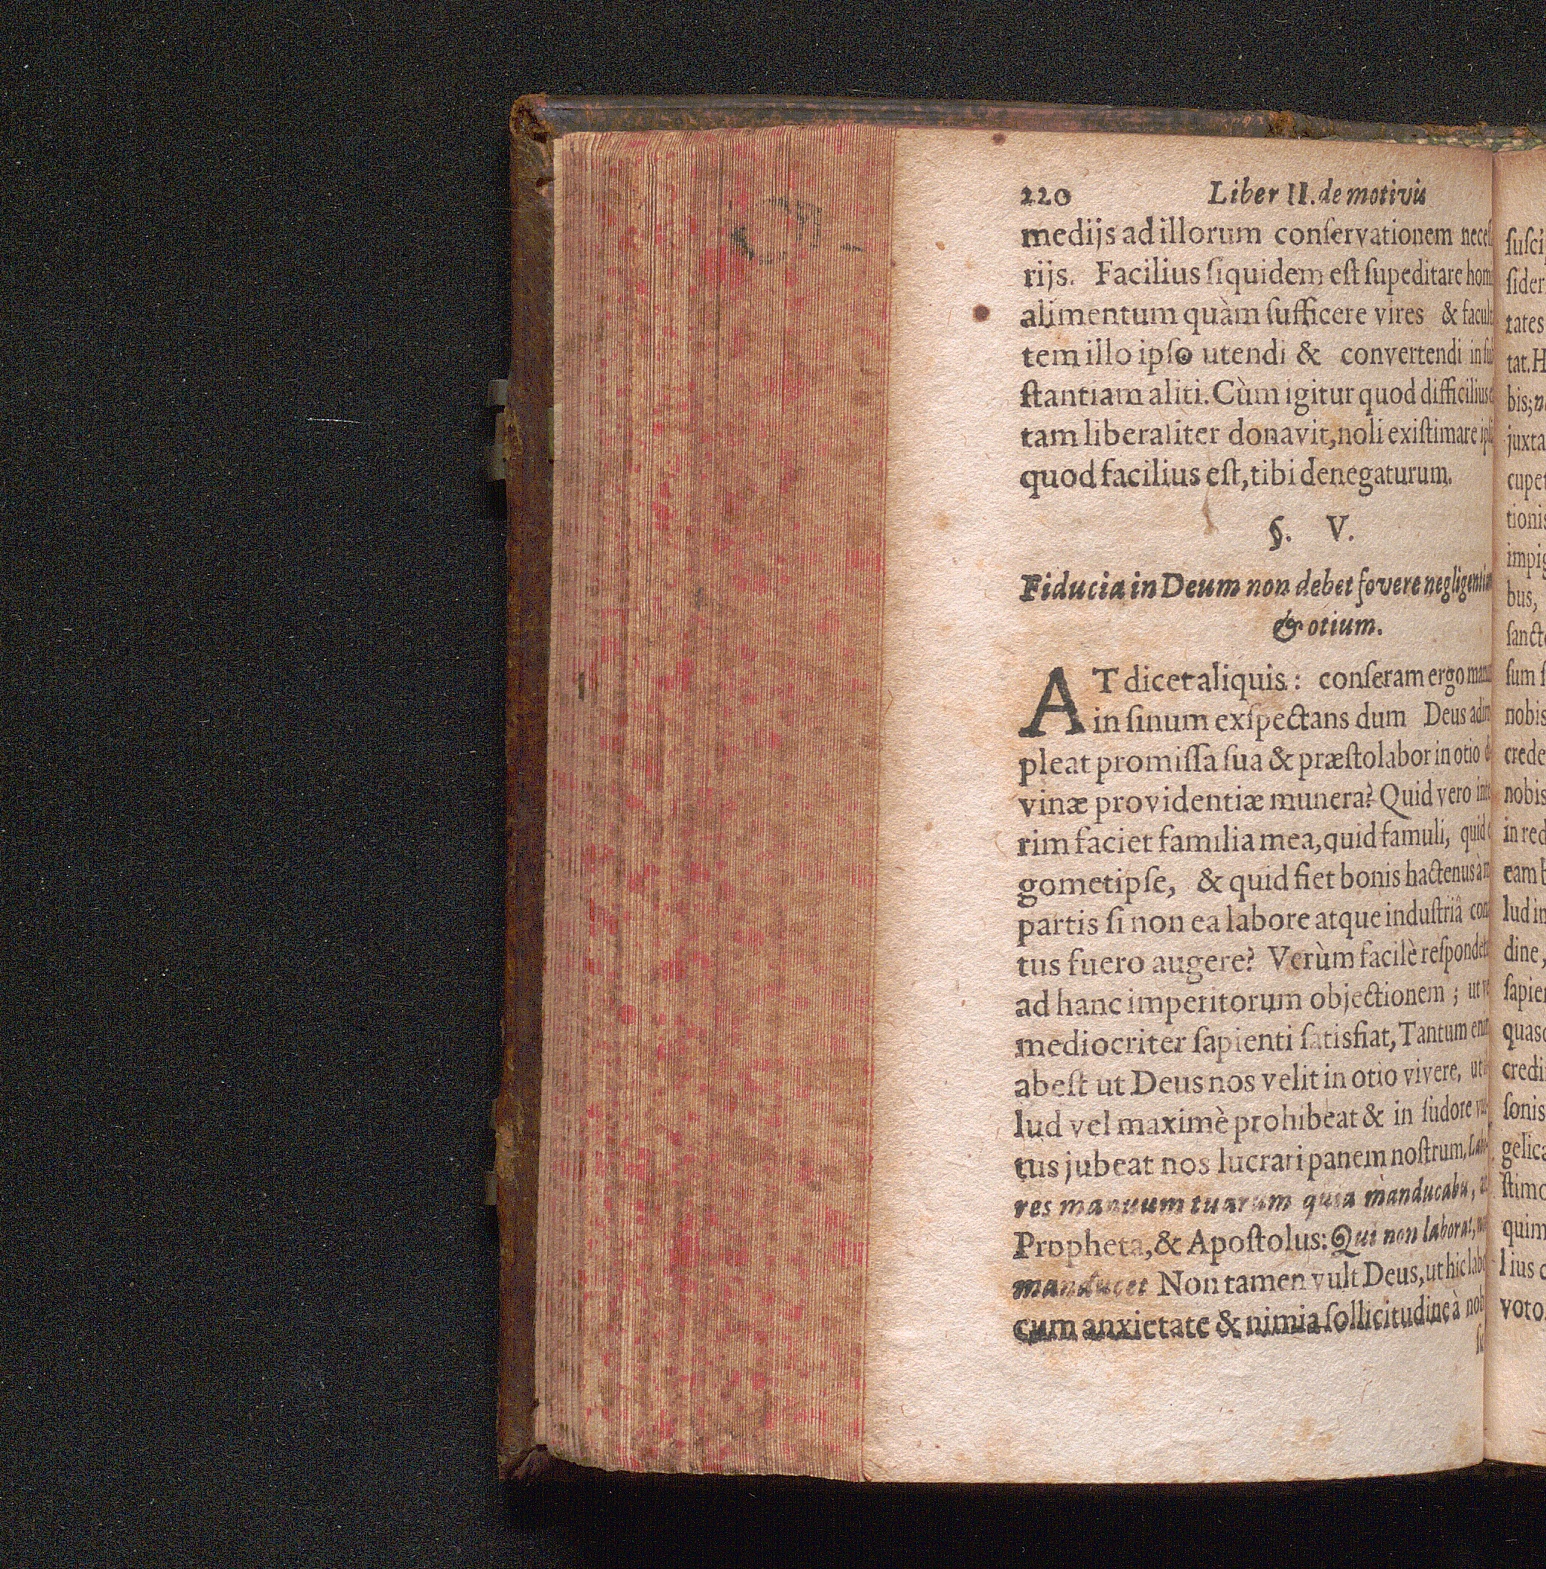 220 Liber II. de motivis
medijs ad illorum conſervationem
rijs. Facilius ſiquidem eſt ſupeditare
alimentum quàm ſufficere vires &
tem illo ipſo utendi & convertendi in
ſtantiam aliti. Cùm igitur quod difficilius
tam liberaliter donavit, noli exiſtimare
quod facilius eſt, tibi denegaturum.
§. V.
Fiducia in Deum non debet fovere
& otium.
AT dicet aliquis: conſeram ergo
in ſinum exſpectans dum Deus
pleat promiſſa ſua & præſtolabor in otio
vinæ providentiæ munera? Quid vero
rim faciet familia mea, quid famuli, quid
gometipſe, & quid fiet bonis hactenus
partis ſi non ea labore atque induſtriâ
tus fuero augere? Verùm facilè
ad hanc imperitorum objectionem; ut
mediocriter ſapienti ſatisfiat, Tantum
abeſt ut Deus nos velit in otio vivere,
lud vel maximè prohibeat & in ſudore
tus jubeat nos lucrari panem noſtrum,
res manuum tuarum quia manducabis,
Propheta, & Apoſtolus: Qui non laborat,
manducet Non tamen vult Deus, ut hic
cum anxietate & nimia ſollicitudine à
tates
tat.
bis;
juxta
bus,
ſum
nobis
crede
nobis
in
dine,
voto